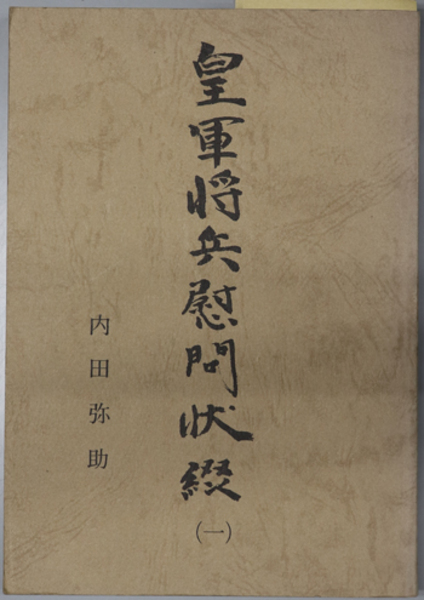 皇軍将兵慰問状綴
(一)
内田弥助